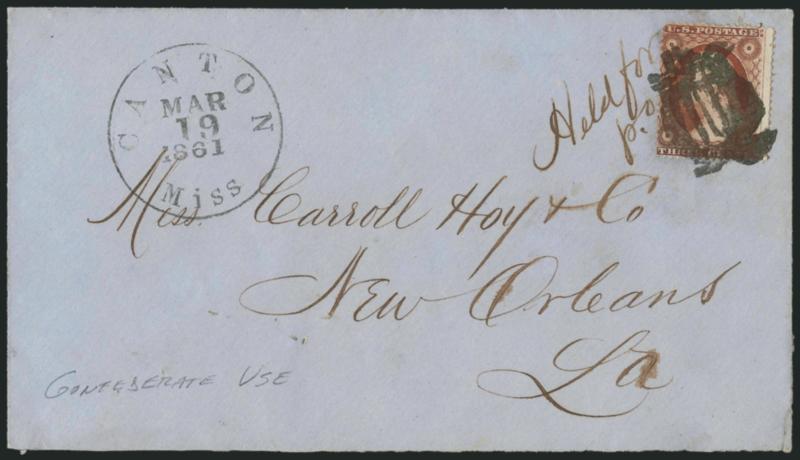 CANTON
MAR
19
1861
Miss
U.S. POSTAGE
Held for
po
p.
THREE
Miss. Carroll Hoy & Co
New Orleans
La
CONFEDERATE USE